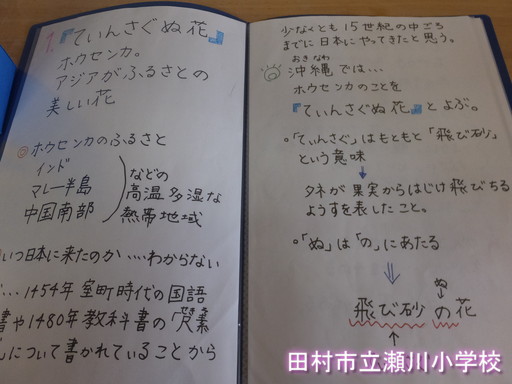 1.『てぃんさぐぬ花』
ホウセンカ。
アジアがふるさとの
美しい花
◎ホウセンカのふるさと
インド
マレー半島
中国南部
などの
高温多湿な
熱帯地域
いつ日本に来たのか‥‥わからない
‥‥1454年室町時代の国語
書や1480年教科書の「
について書かれていることから
少なくとも15世紀の中ごろ
までに日本にやってきたと思う。
おきなわ
沖縄では‥‥
ホウセンカのことを
『てぃんさぐぬ花』とよぶ。
○「てぃんさぐ」はもともと「飛び砂」
という意味
タネが果実からはじけ飛びちる
ようすを表したこと。
○「ぬ」は「の」にあたる
ぬ
飛び砂の花
田村市立瀬川小学校